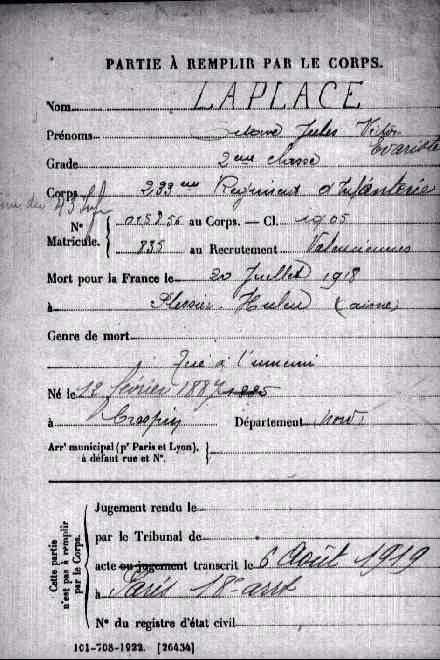 PARTIE À REMPLIR PAR LE CORPS.
Nom LAPLACE
Prénoms Jules Victor
Evariste
Grade 2eme classe
Corps 233me Régiment d'Infanterie
du 73
N° Matricule. { 015856 au Corps. — Cl. 1905
835 au Recrutement Valenciennes
Mort pour la France le 20 Juillet 1918
à Plessier-Huleu (aisne)
Genre de mort
Tué à l'ennemi
Né le 13 février 1887 1885
à Crespin Département Nord
Arrt municipal (pr Paris et Lyon), à défaut rue et N°. }
Cette partie n'est pas à remplir par le Corps.
Jugement rendu le
par le Tribunal de
acte ou jugement transcrit le 6 Août 1919
à Paris 18e arrt
N° du registre d'état civil
101-708-1922. [26434]